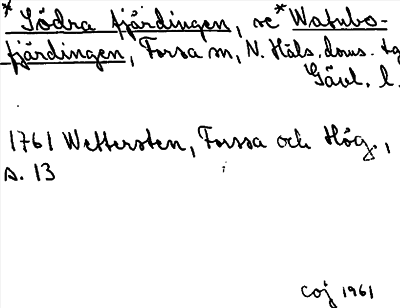 * Södra fjärdingen, se * Watubo-
fjärdingen, Forsa sn, N. Häls. doms. tg
Gävl. l.
1761 Wettersten, Forssa och Hög.,
s. 13
coj 1961